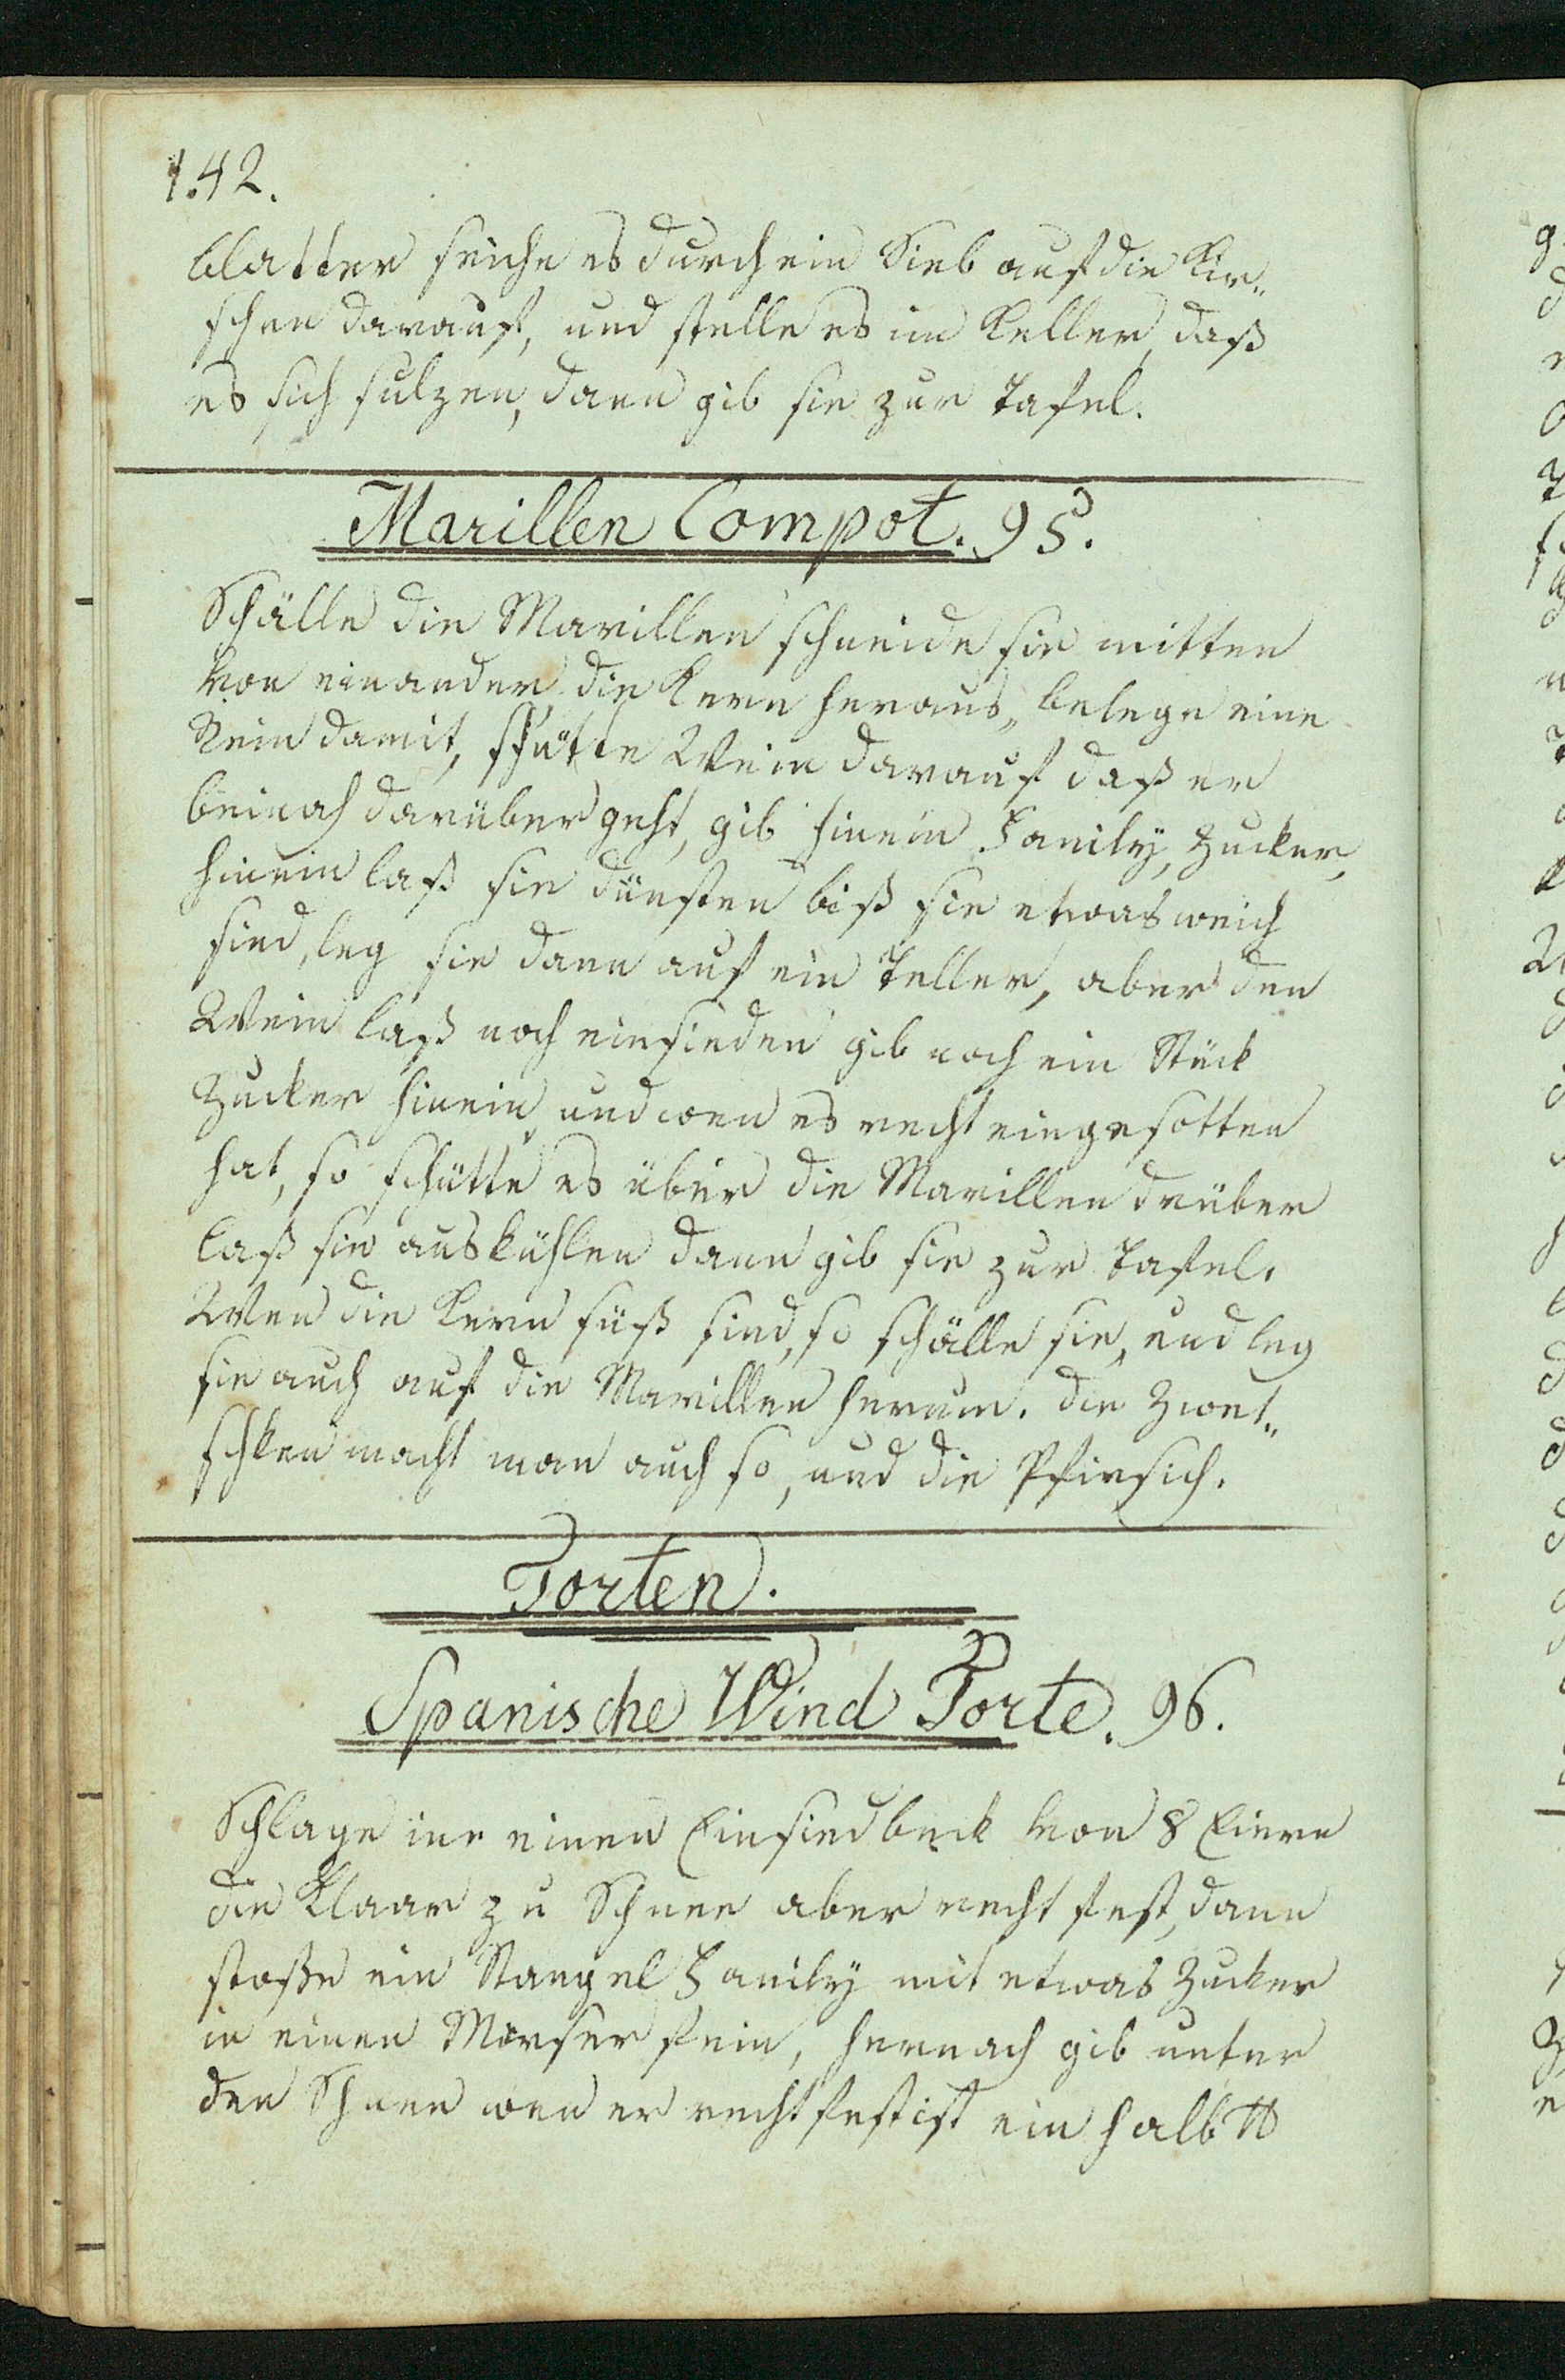 142.
blatter seiche es durch ein Sieb auf die Kir„
schen darauf, und stelle es im Keller, daß
es sich sulzen, dann gib sie zur Tafel.
Marillen Compot. 95.
Schälle die Marillen schneide sie mitten
von einander, die Kern heraus, belege eine
Rein damit, schütte Wein darauf daß er
beinah darüber geht, gib hinein Fanily, Zucker,
hinein laß sie dünsten biß sie etwas weich
sind, leg sie dann auf ein Teller, aber den
Wein laß noch einsieden gib noch ein Stück
Zucker hinein, und wen es recht eingesotten
hat, so schütte es über die Marillen drüber
laß sie auskühlen dann gib sie zur Tafel.
Wen die Kern süß sind, so schälle sie, und leg
sie auch auf die Marillen herum. die Zwet„
schken macht man auch so, und die Pfirsich.
Torten.
Spanische Wind Torte. 96.
Schlage inn einen Einsiedbeck von 8 Eiern
die Klaar zu Schnee aber recht fest, dann
stoße ein Stangel Fanily mit etwas Zucker
in einen Mörser fein, hernach gib unter
den Schnee wen er recht fest ist ein halb ℔